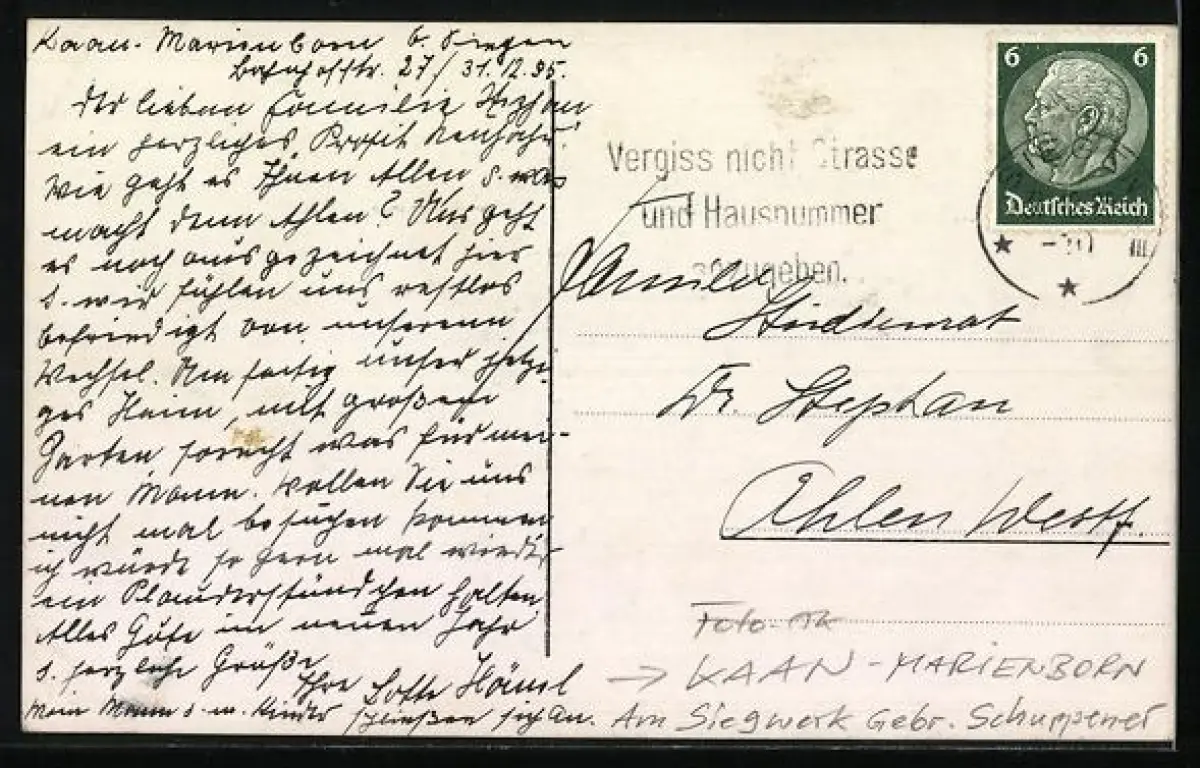 Kaan-Marienborn b. Siegen
Bahnhofstr. 27/ 31.12.35.
Der lieben Familie
ein herzliches Prosit Neujahr!
Wie geht es Ihnen Allen u. was
macht denn Ahlen? Uns geht
es noch ausgezeichnet hier
u. wir fühlen uns restlos
befriedigt von unserem
Wechsel. Nun fertig unser jetzi-
ges Heim, mit großem
Garten, so recht was für mei-
nen Mann. Wollen Sie uns
nicht mal besuchen kommen
ich würde so gern mal wieder
ein Plauderstündchen halten
Alles Gute im neuen Jahr
u. herzliche Grüße
Ihre Lotte
Mein Mann u. m. Kinder schließen sich an.
6 6
Deutsches Reich
Vergiss nicht Strasse
und Hausnummer
anzugeben.
Familie
Dr. Stephan
Ahlen Westf.
Foto-AK
→ KAAN-MARIENBORN
Am Siegwerk Gebr. Schuppener